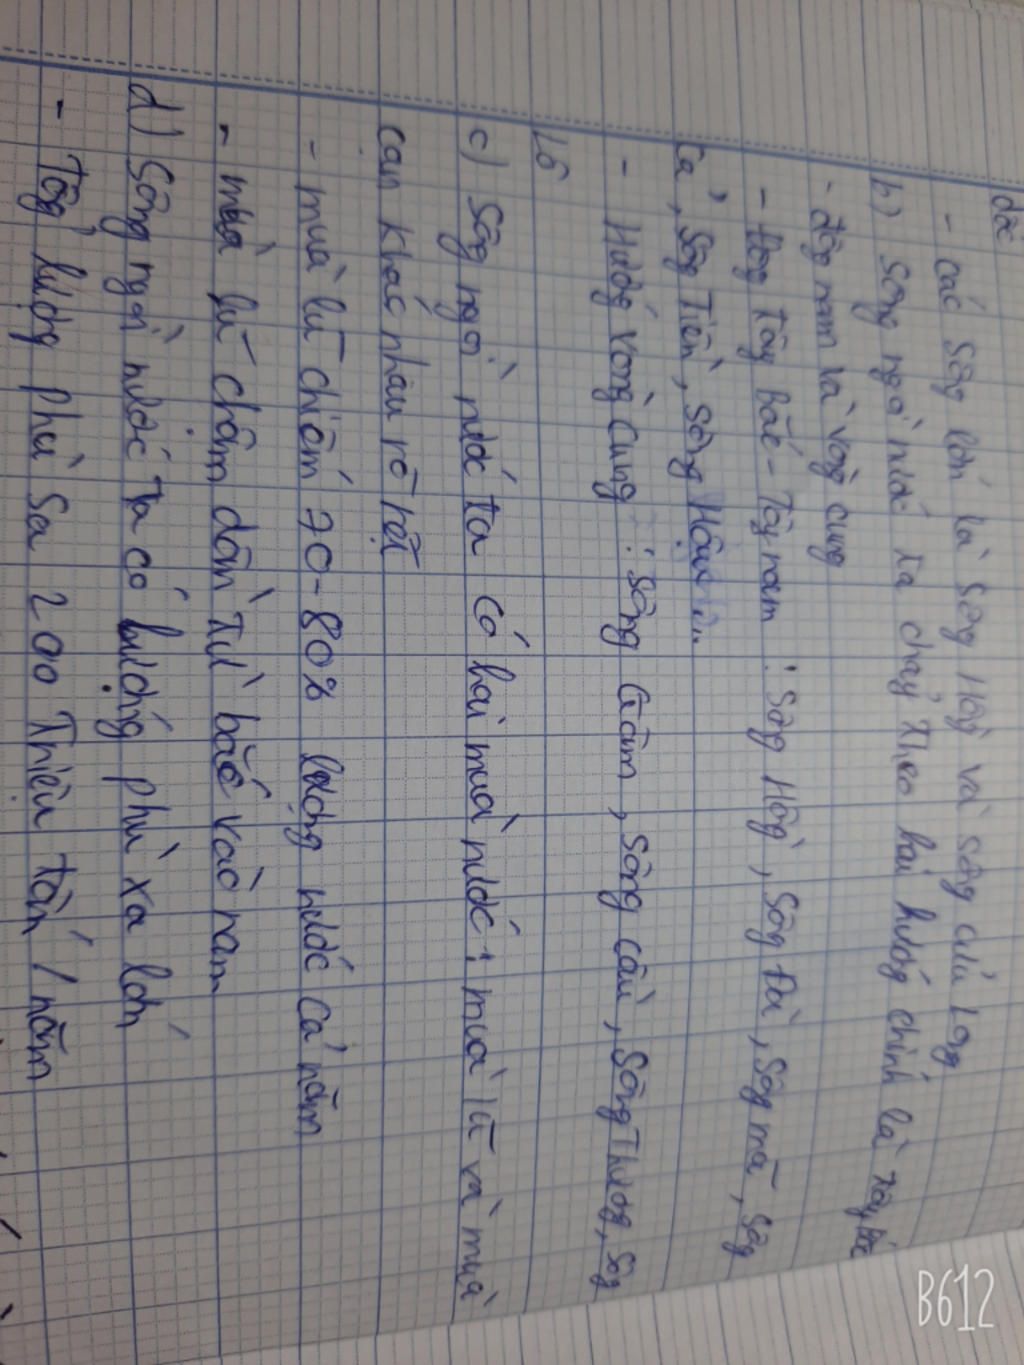 dốc
- các sông lớn là sông Hồng và sông cửu Long
b) sông ngòi nước ta chảy theo hai hướng chính là tây bắc
- đông nam và vòng cung
- Hướng Tây Bắc - Tây nam : sông Hồng, sông Đà, sông mã, sông
cả, sông Tiền, sông Hậu...
- Hướng vòng cung : sông Gâm, sông cầu, sông Thương, sông
Lô
c) sông ngòi nước ta có hai mùa nước : mùa lũ và mùa
cạn khác nhau rõ rệt
- mùa lũ chiếm 70-80% lượng nước cả năm
- mùa lũ chậm dần từ bắc vào nam
d) sông ngòi nước ta có lượng phù xa lớn
- Tổng lượng phù sa 200 triệu tấn / năm
B612